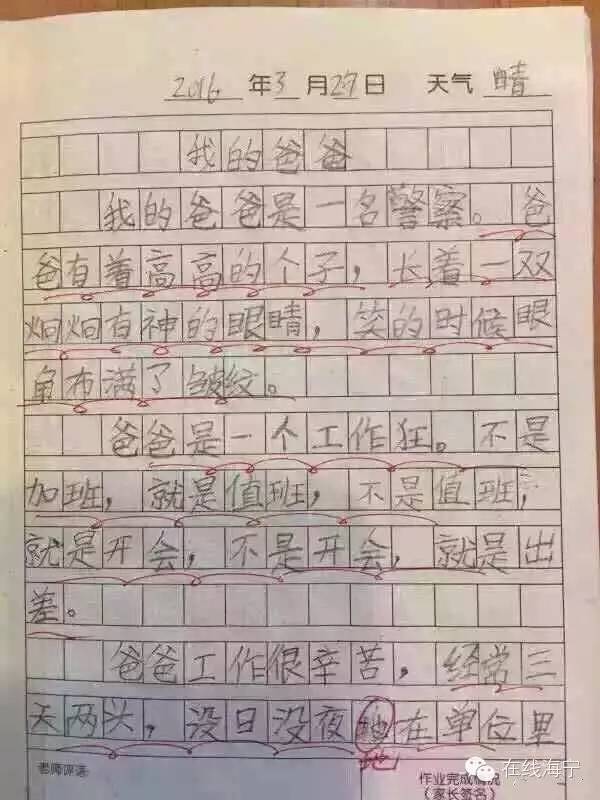 2016 年 3 月 27 日 天气 晴
我的爸爸
我的爸爸是一名警察。爸
爸有着高高的个子，长着一双
炯炯有神的眼睛，笑的时候眼
角布满了皱纹。
爸爸是一个工作狂。不是
加班，就是值班，不是值班，
就是开会，不是开会，就是出
差。
爸爸工作很辛苦，经常三
天两头，没日没夜地在单位里
地
老师评语:
作业完成情况
（家长签名）
在线海宁